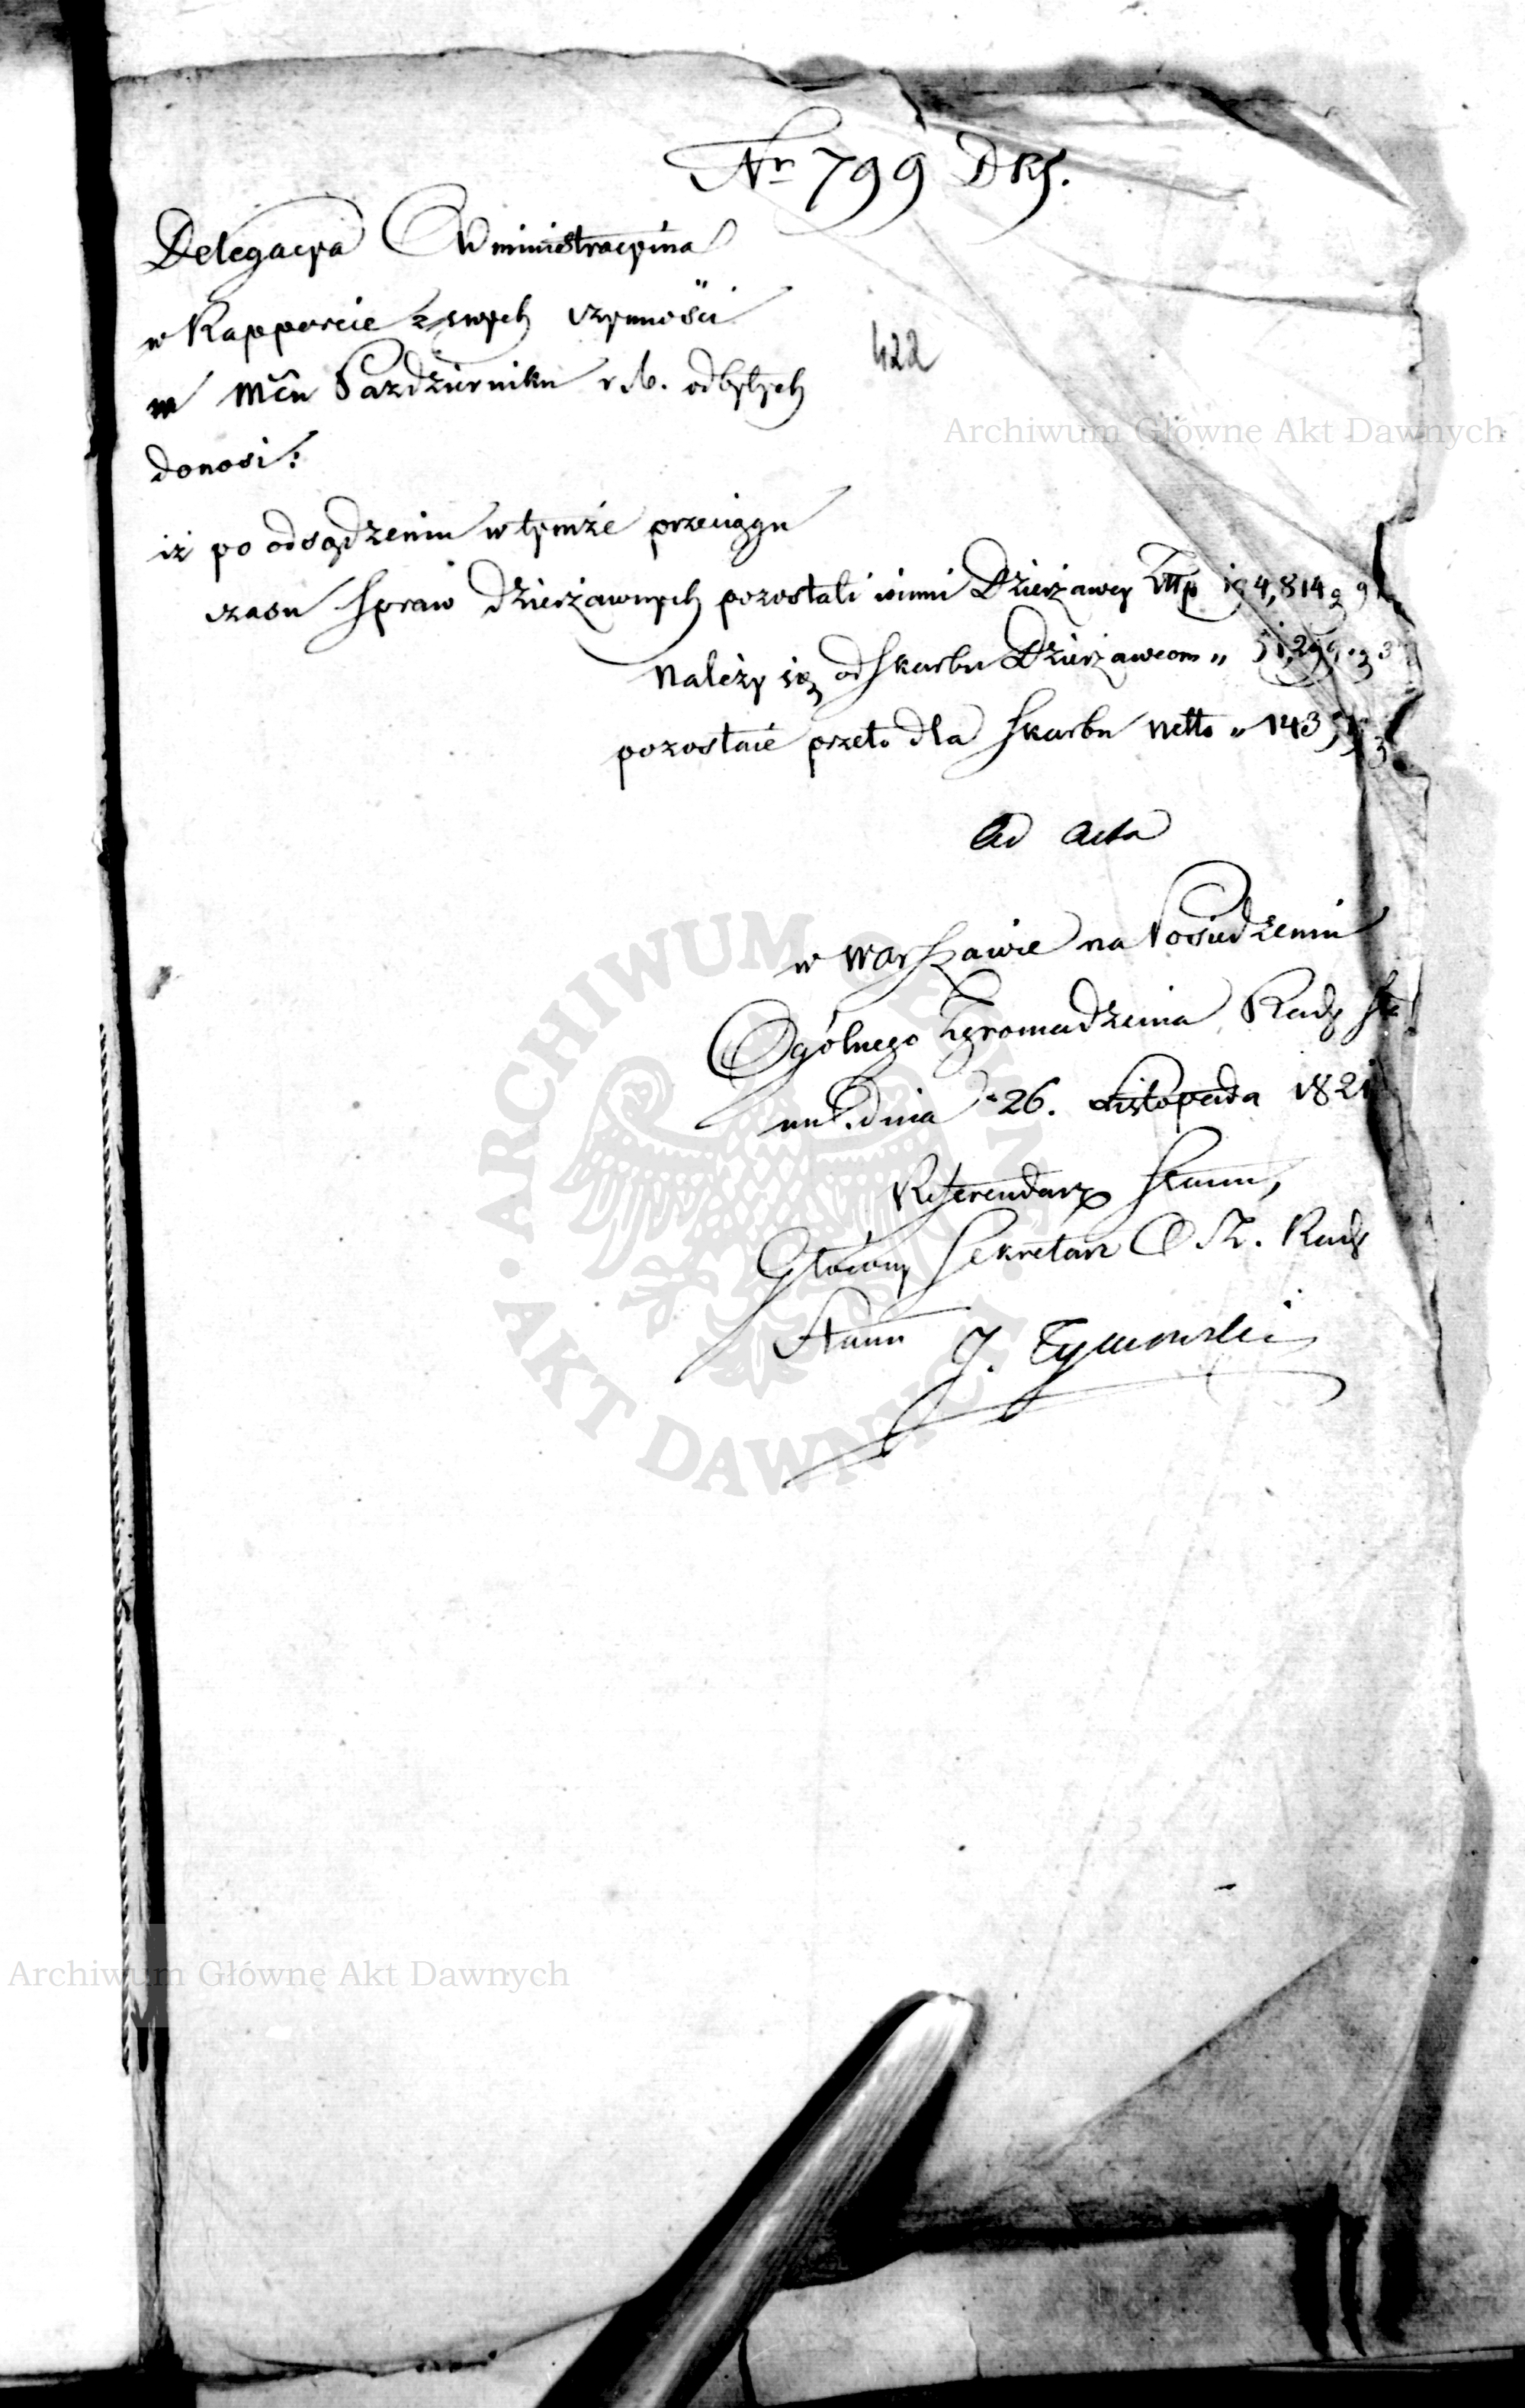 Nr 799 DKS.
Delegacya Administracyina
w Rapporcie z swych czynności
w Mcu Pazdzierniku r. b. odbytych
422
Archiwum Główne Akt Dawnych
donosi:
iż po odsądzeniu w tymże przeciągu
czasu spraw dzierżawnych pozostali winni Dzierżawcy Złłp 194,814 g 9
Należy się od Skarbu Dzierżawcom „ 51,299. g 3
pozostaie przeto dla Skarbu netto „ 143
Ad Acta
w Warszawie na Posiedzeniu
Ogólnego Zgromadzenia Rady
dnia 26. Listopada 1821
Referendarz Stanu,
Główny Sekretarz O. Z. Rady
Stanu J. Tymowski
ARCHIWUM GŁÓWNE · AKT DAWNYCH ·
Archiwum Główne Akt Dawnych